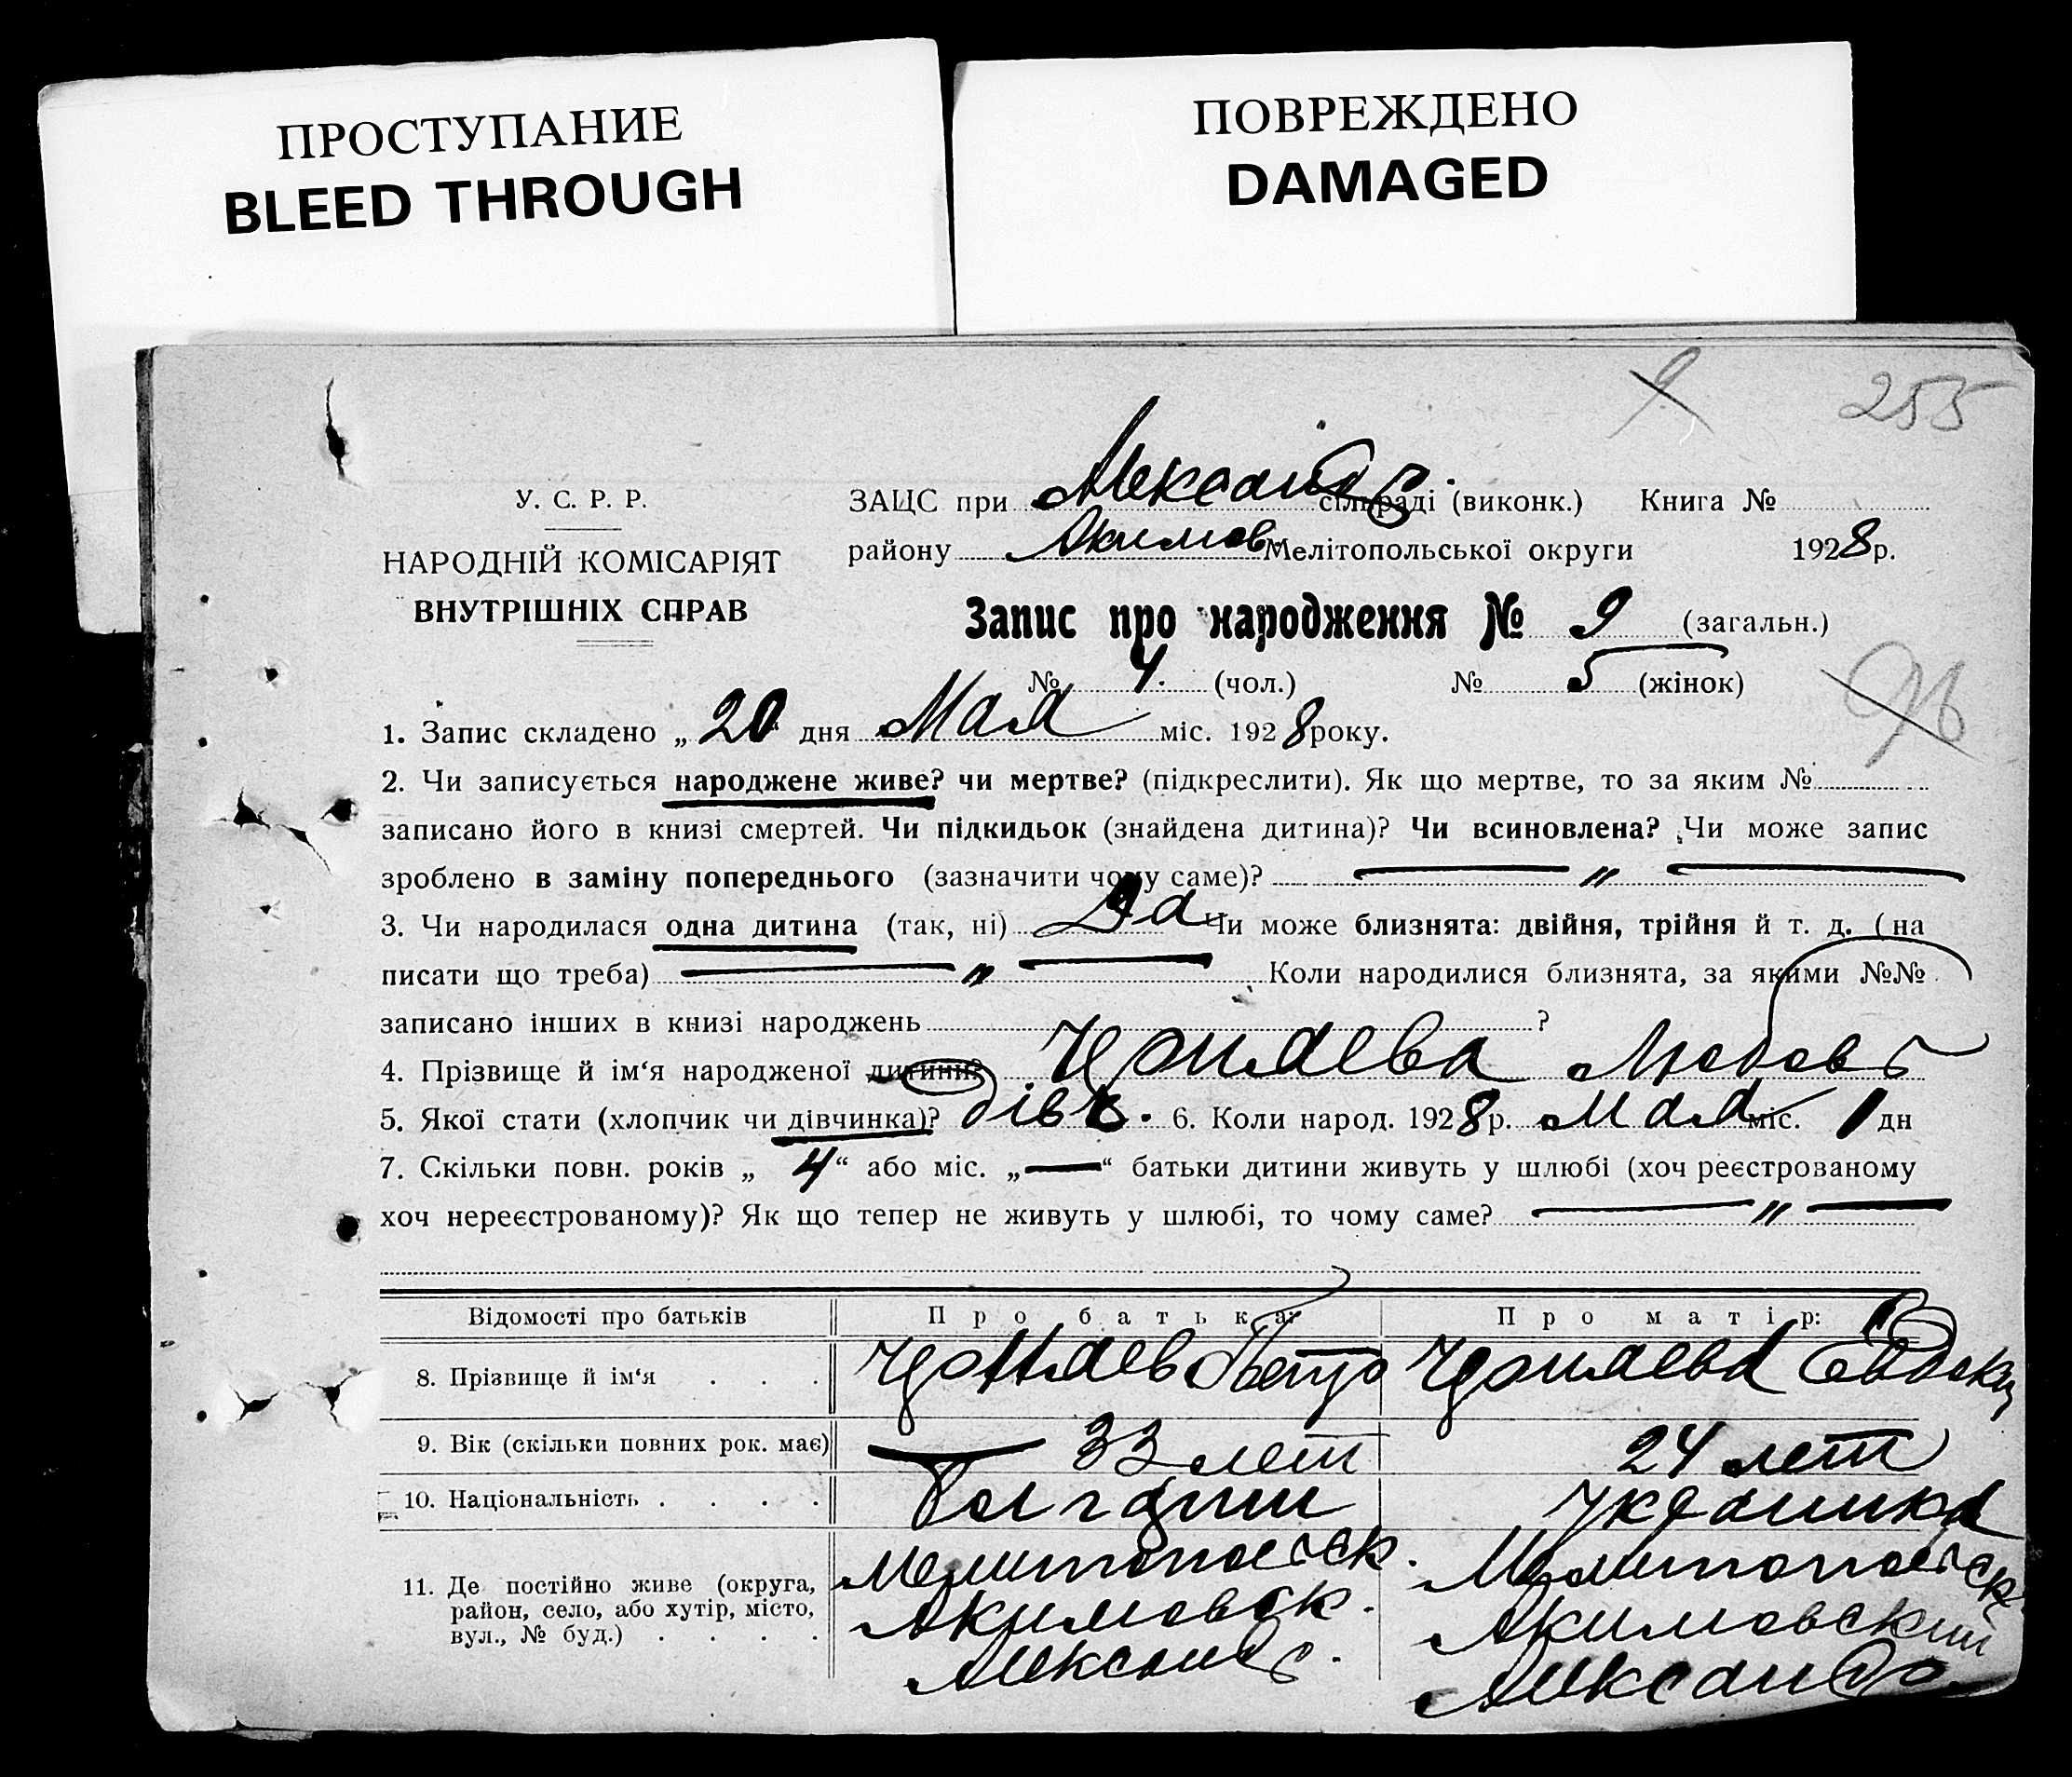 ПРОСТУПАНИЕ
BLEED THROUGH
ПОВРЕЖДЕНО
DAMAGED
9
255
У. С. Р. Р.
НАРОДНІЙ КОМІСАРІЯТ
ВНУТРІШНІХ СПРАВ
ЗАЦС при Александр. сільраді (виконк.) Книга №
району Акимов. Мелітопольської округи 1928 р.
Запис про народження № 9 (загальн.)
№ 4. (чол.) № 5 (жінок)
96
1. Запис складено „ 20 " дня Мая міс. 1928 року.
2. Чи записується народжене живе? чи мертве? (підкреслити). Як що мертве, то за яким №
записано його в книзі смертей. Чи підкидьок (знайдена дитина)? Чи всиновлена? Чи може запис
зроблено в заміну попереднього (зазначити чому саме)? — „ —
3. Чи народилася одна дитина (так, ні) Да Чи може близнята: двійня, трійня й т. д. (на
писати що треба) — „ — Коли народилися близнята, за якими №№
записано інших в книзі народжень ?
4. Прізвище й ім‘я народженої дитини? Любовь
5. Якої стати (хлопчик чи дівчинка)? дівч. 6. Коли народ. 1928 р. Мая міс. 1 дн
7. Скільки повн. років „ 4 “ або міс. „ — “ батьки дитини живуть у шлюбі (хоч реєстрованому
хоч нереєстрованому)? Як що тепер не живуть у шлюбі, то чому саме? — „ —
Відомості про батьків Про батька: Про матір:
8. Прізвище й ім‘я . . . Петро
9. Вік (скільки повних рок. має) 33 лет 24 лет
10. Національність . . . . Болгарин Украинка
11. Де постійно живе (округа, Мелитопольск. Мелитопольск.
район, село, або хутір, місто, Акимовск. Акимовский
вул., № буд.) . . . . Александр. Александр.